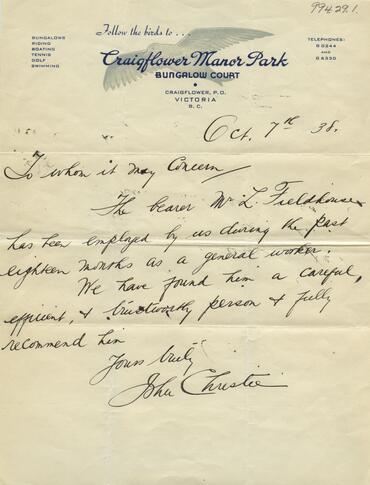 99429.1.
Follow the birds to . . .
BUNGALOWS
RIDING
BOATING
TENNIS
GOLF
SWIMMING
Craigflower Manor Park
BUNGALOW COURT
CRAIGFLOWER, P.O.
VICTORIA
B.C.
TELEPHONES:
G 0244
AND
G 6330
Oct. 7th 38.
To whom it may Concern
The bearer Mr L. Fieldhouse
has been employed by us during the past
eighteen months as a general worker.
We have found him a careful,
efficient, & trustworthy person & fully
recommend him
Yours truly
John Christie